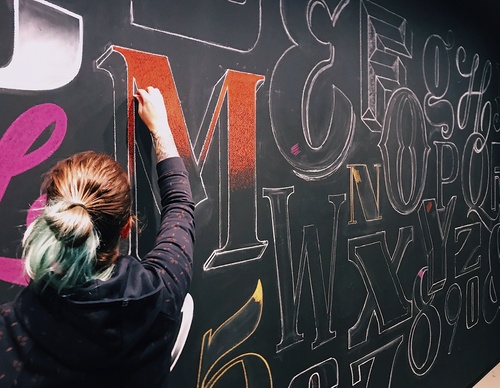 M E F g H
N O P Q
W X Y Z
5 7 8 9 0